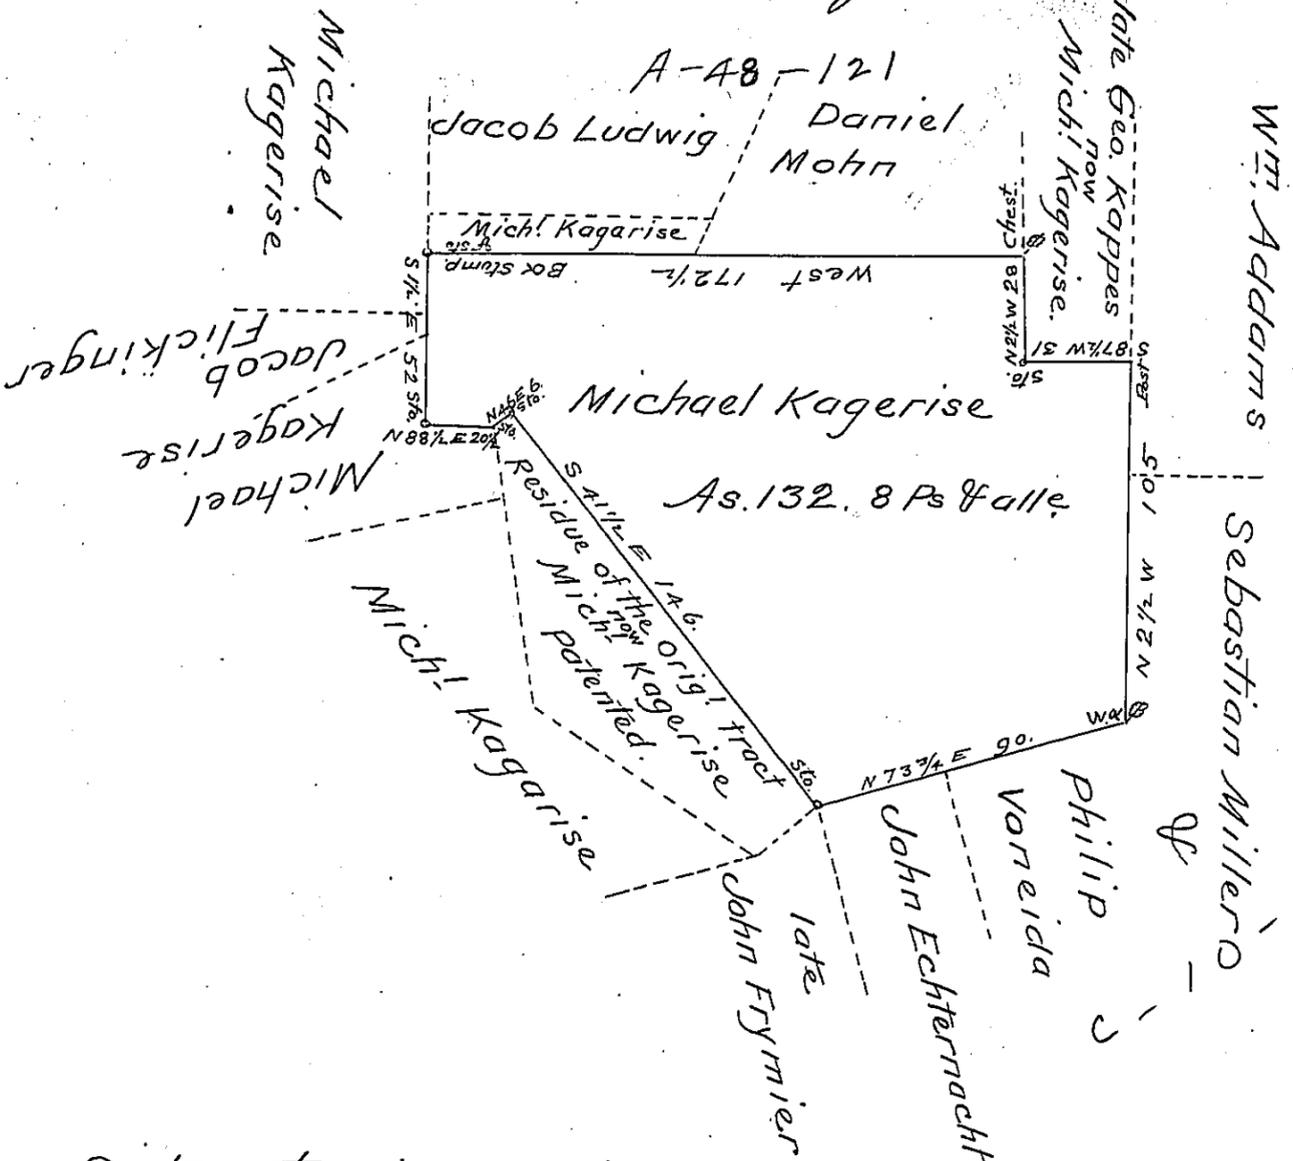 A-48-121
Michael
Kagerise
Jacob Ludwig
Daniel
Mohn
late Geo. Kappes
now
Mich! Kagerise.
Wm. Addams
Mich! Kagarise
& sto
Box stump.
West 172½
Chest.
N 2½ W 28
Sto.
S 87½ W 31
Post
N 2½ W 105
S 1½ E 52 Sto.
Jacob
Flickinger
Michael
Kagerise
N 88½ E 20½
Sto.
N 46 E 6.
Sto.
Michael Kagerise
As. 132. 8 Ps & alle.
S 41½ E 146.
Sto.
Residue of the orig! tract
now
Mich! Kagerise
patented.
Mich! Kagarise
N 73¾ E 90.
W.o.
Sebastian Miller
Philip
Voneida
John Echternacht
late
John Frymier